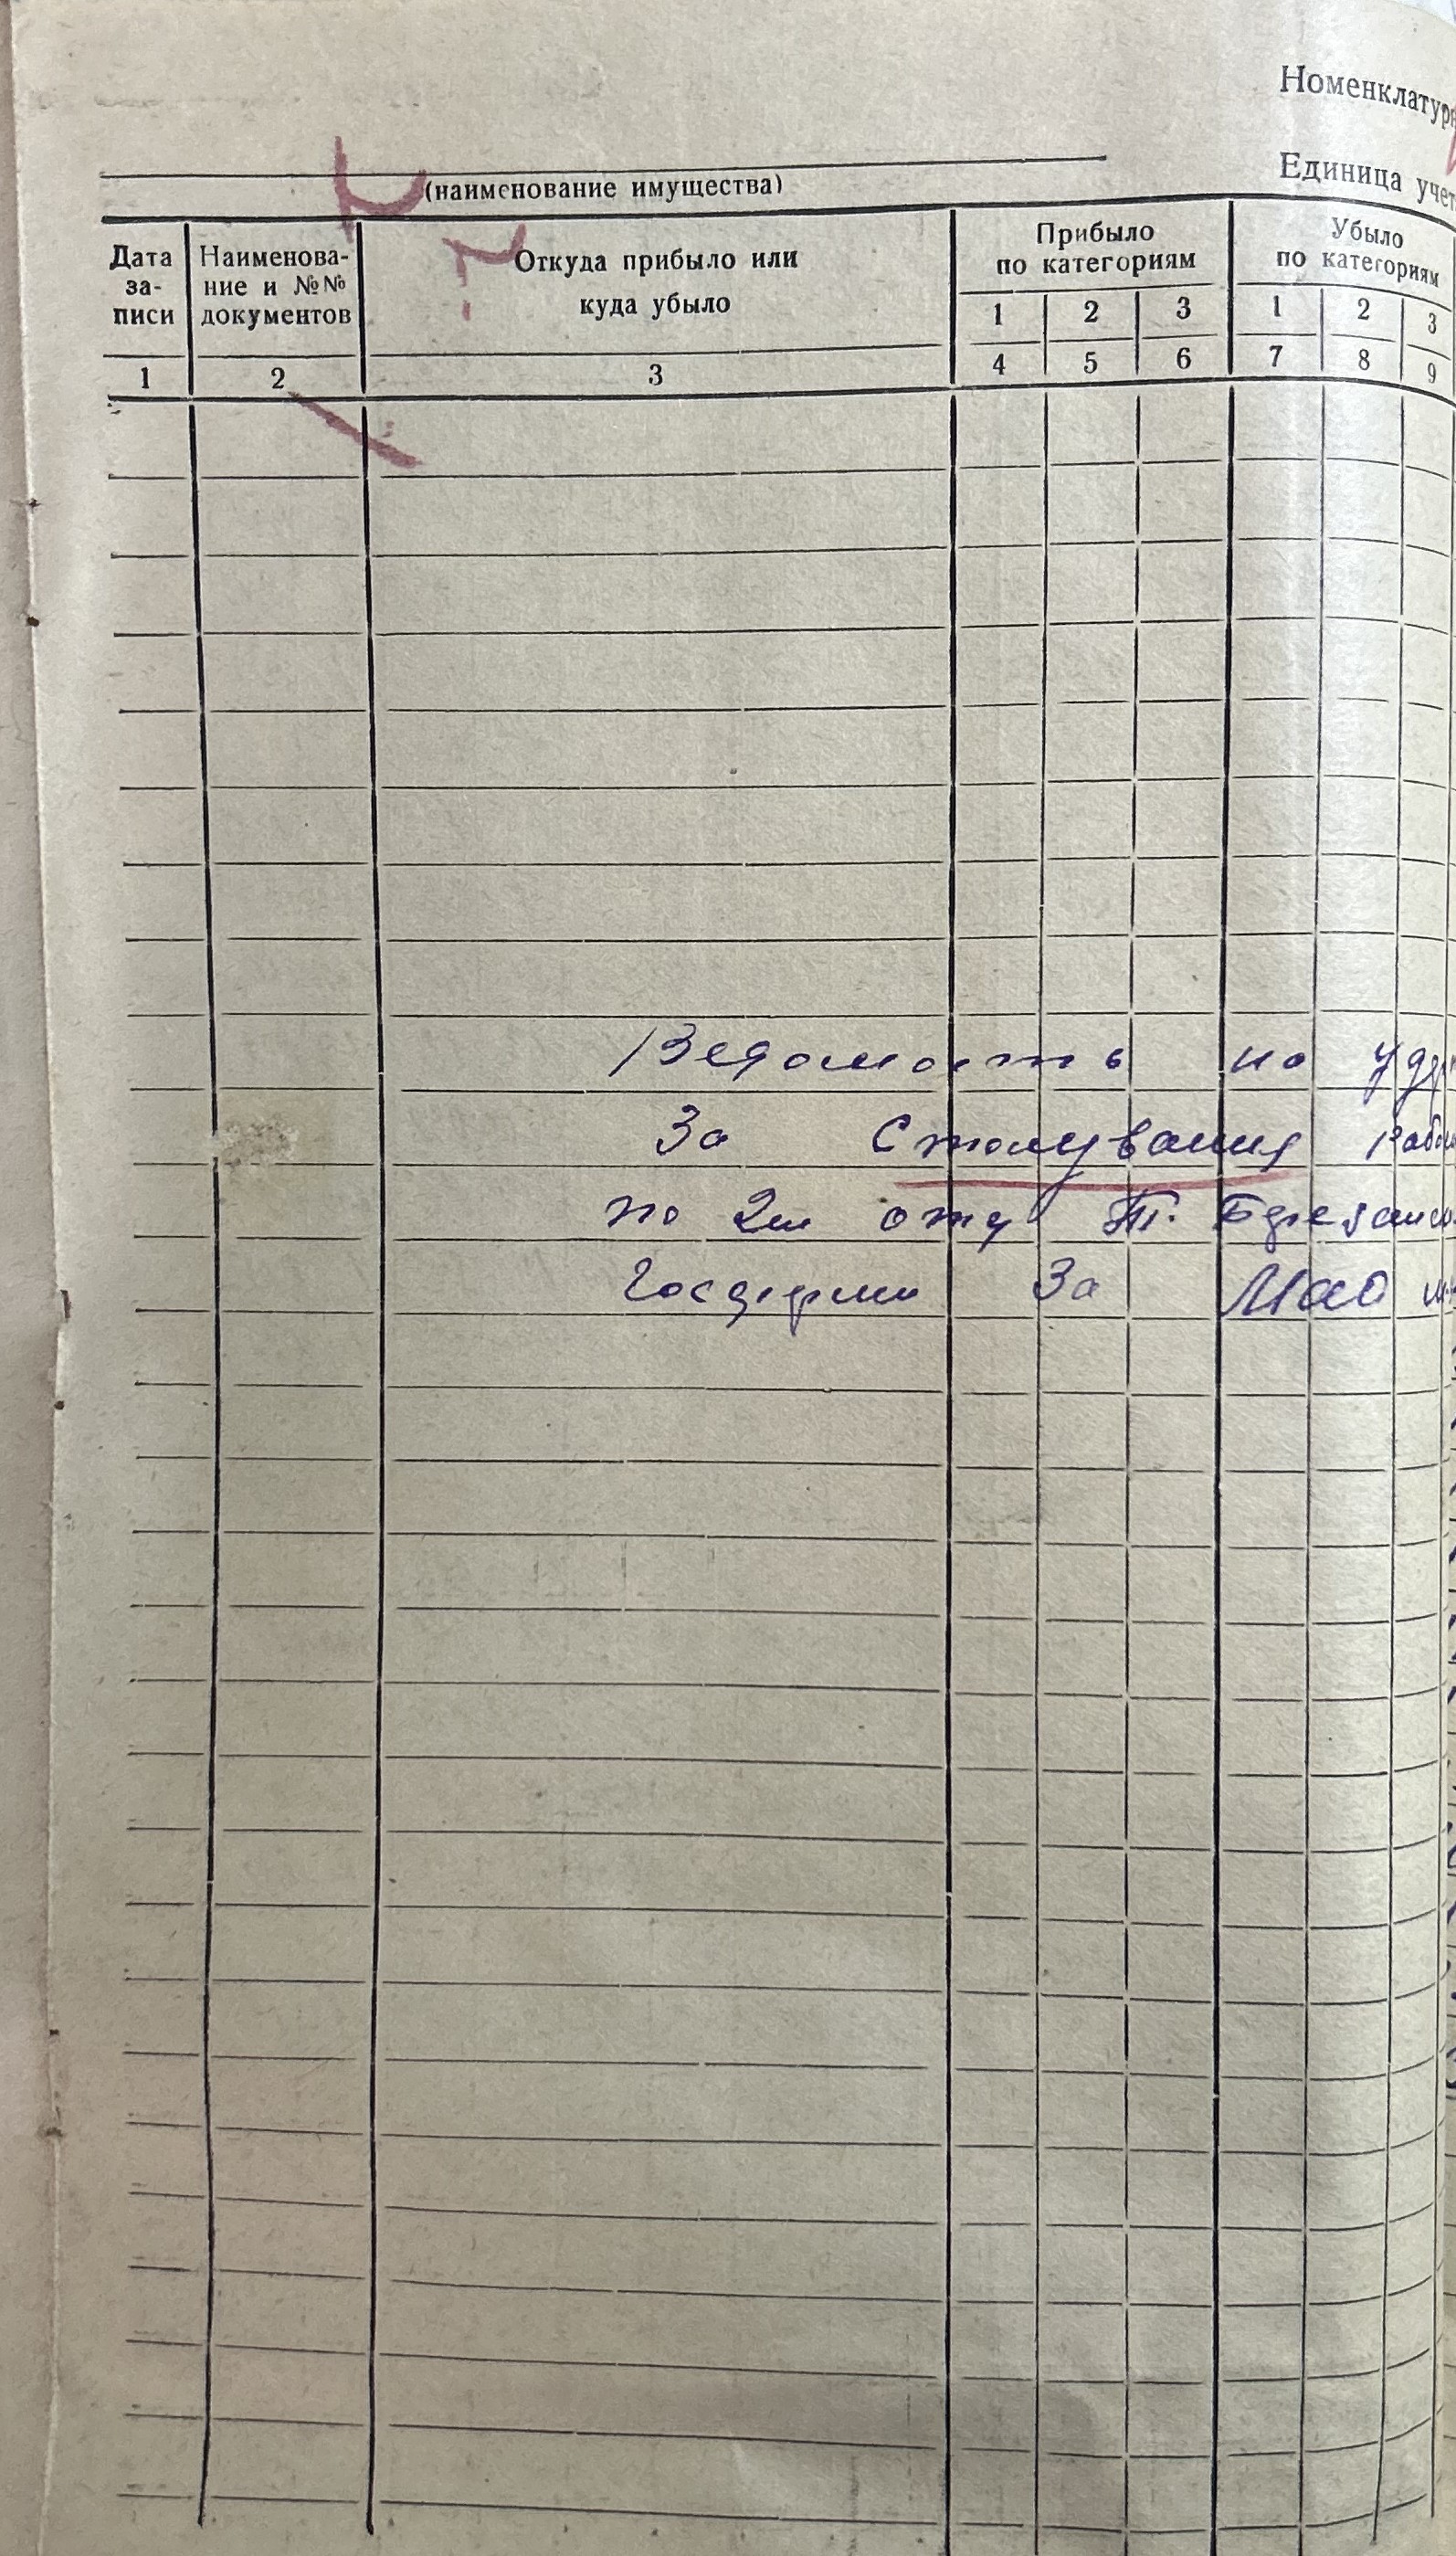 Номенклатур
Единица учет
(наименование имущества)
Дата за- писи
Наименова- ние и №№ документов
Откуда прибыло или куда убыло
Прибыло по категориям
Убыло по категориям
1 2 3 1 2 3
1 2 3 4 5 6 7 8 9
Ведомость на удр
За Столування Рабо
по 2ш отд Т.
За Мао